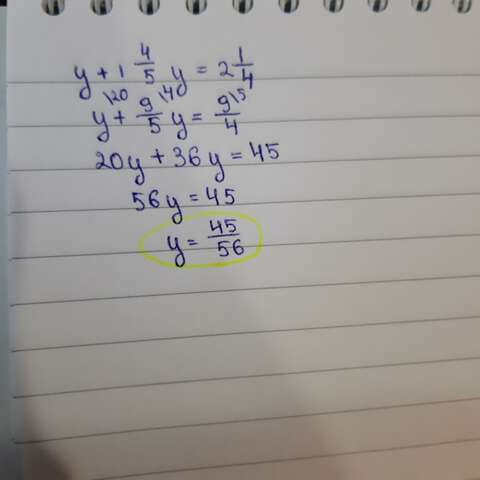 y + 1 4/5 y = 2 1/4
y\20 + 9/5\4 y = 9\5/4
20y + 36y = 45
56y = 45
y = 45/56